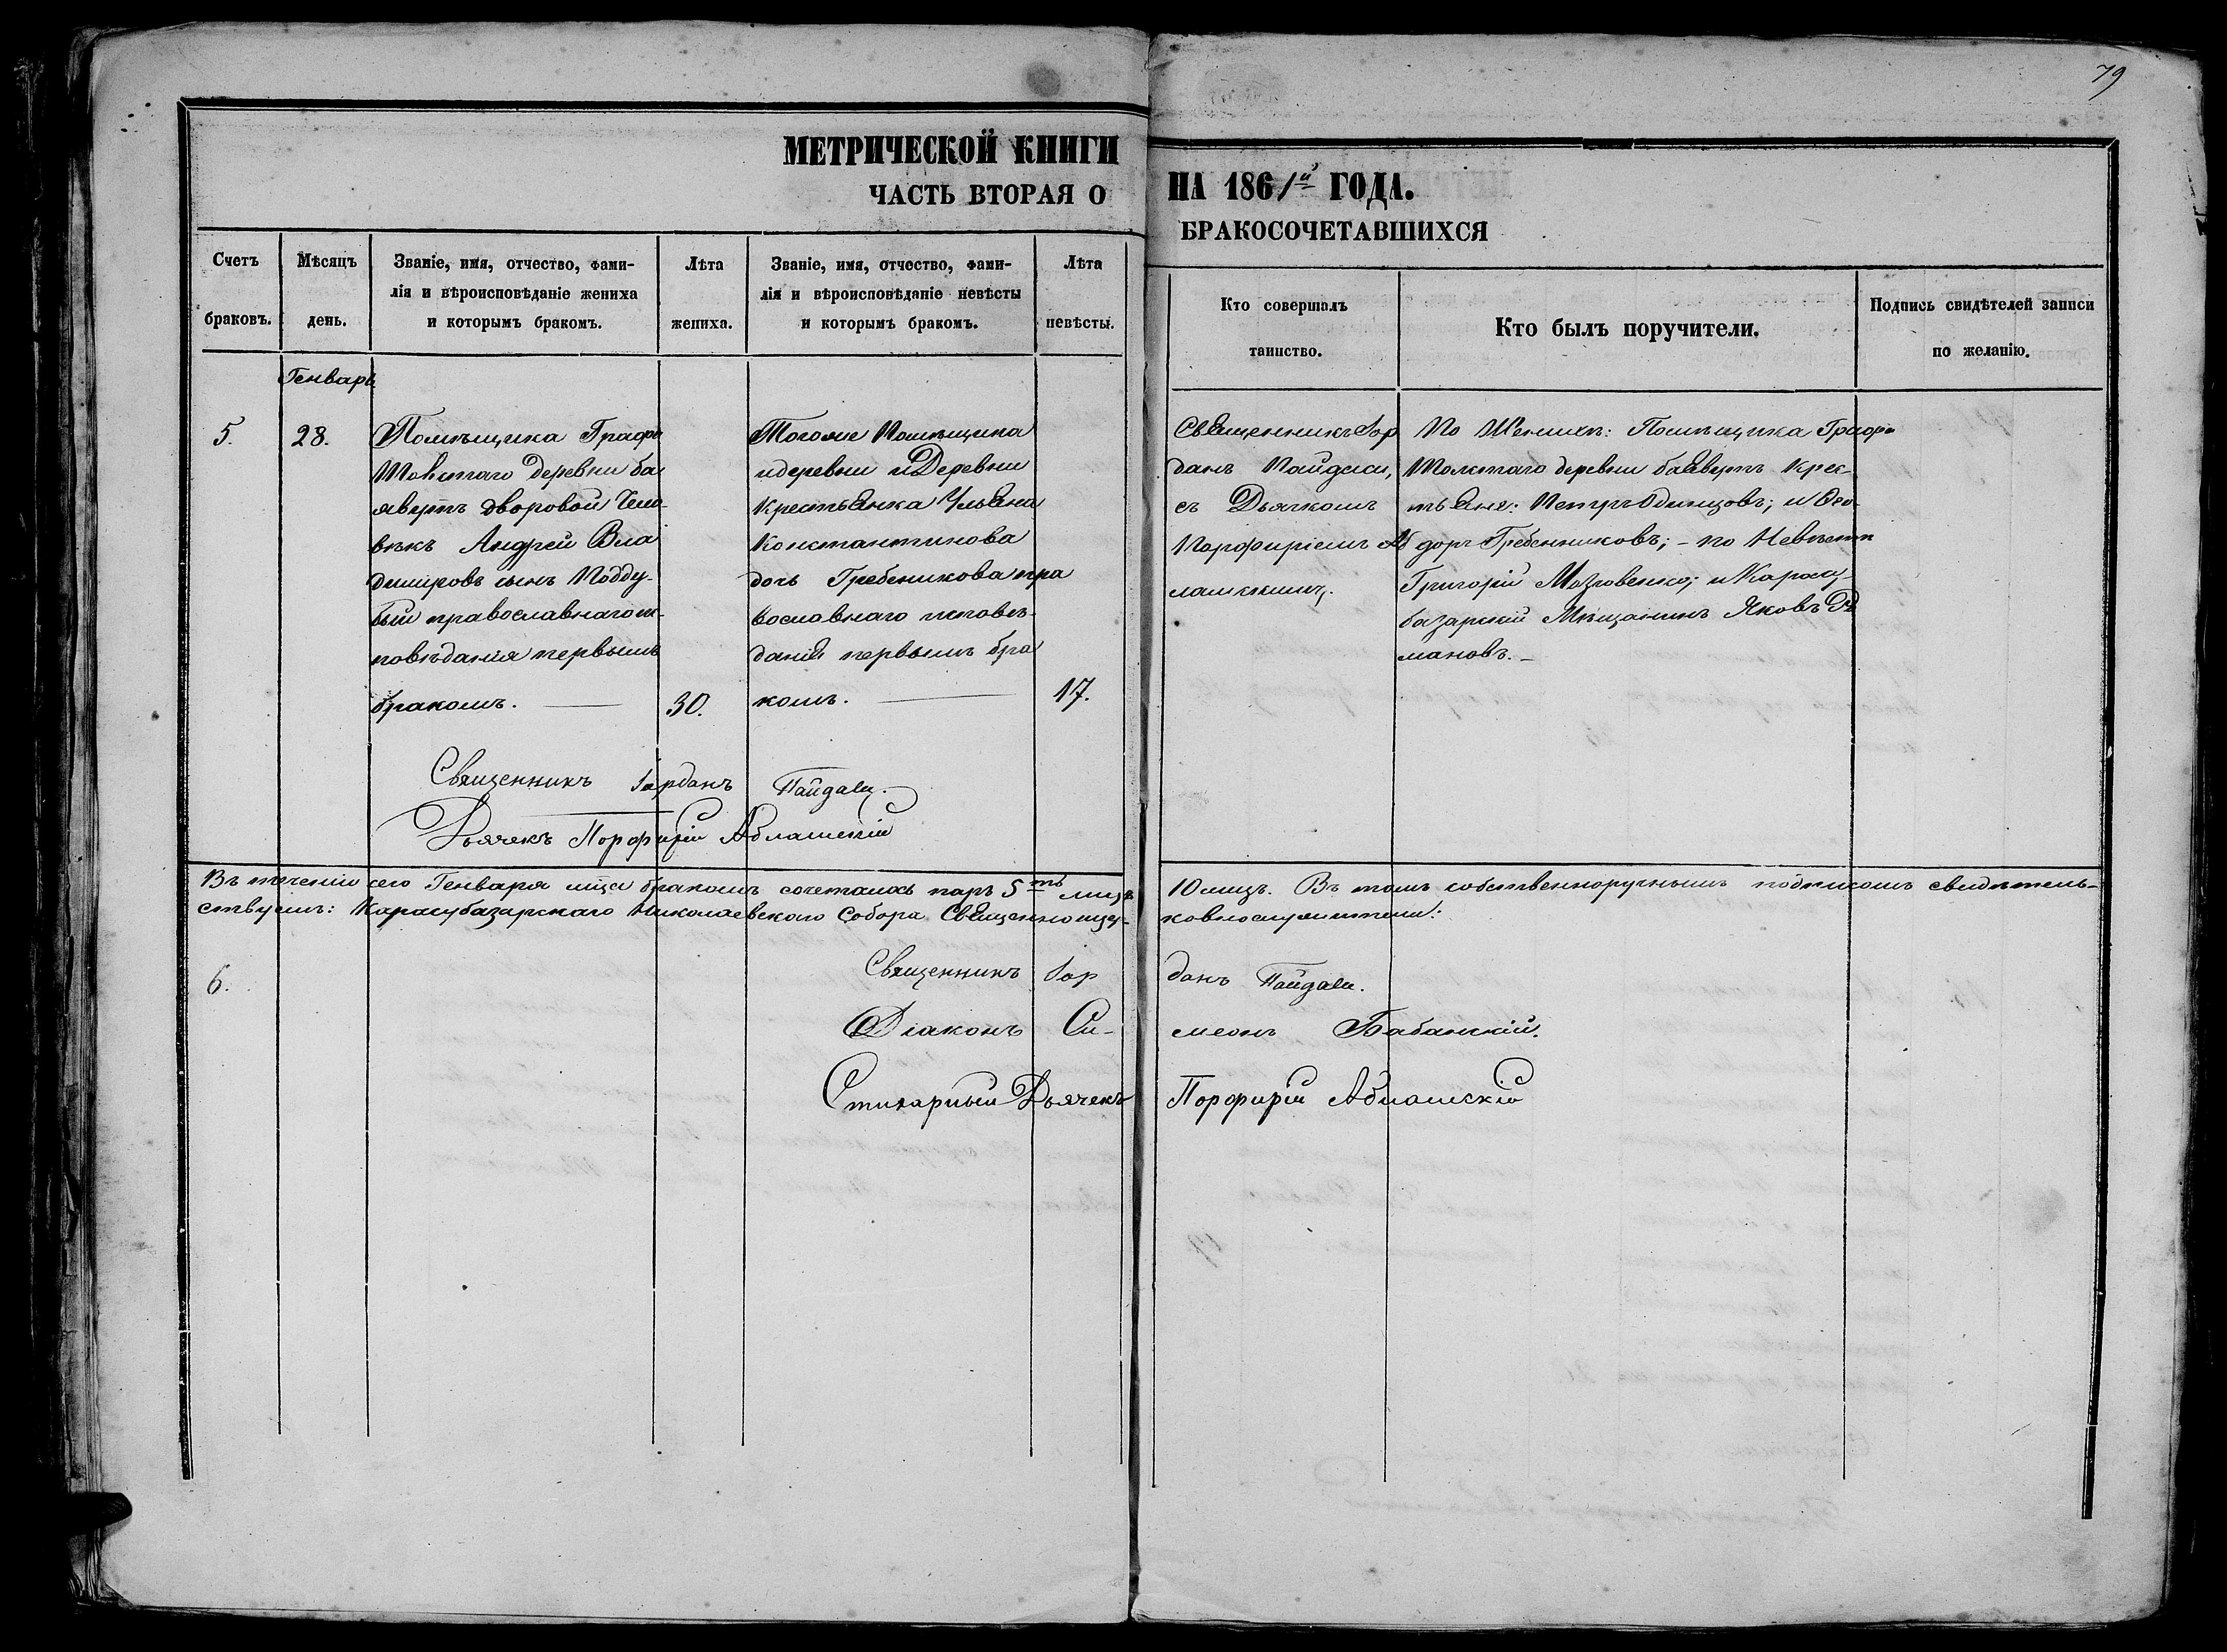 79
МЕТРИЧЕСКОЙ КНИГИ НА 1861й ГОДА.
ЧАСТЬ ВТОРАЯ О БРАКОСОЧЕТАВШИХСЯ
Счетъ браковъ.
Мѣсяцъ день.
Званіе, имя, отчество, фами-
лія и вѣроисповѣданіе жениха
и которымъ бракомъ.
Лѣта жениха.
Званіе, имя, отчество, фами-
лія и вѣроисповѣданіе невѣсты
и которымъ бракомъ.
Лѣта невѣсты.
Кто совершалъ
таинство.
Кто былъ поручители.
Подпись свидѣтелей записи
по желанію.
Генварь
5.
28.
Помѣщика Графа
деревни ба
явутъ дворовой Чело-
вѣкъ Андрей Вла
диміровъ сынъ Подду-
бый православнаго ис-
повѣданія первымъ
бракомъ.
30.
Тогоже Помѣщика
и деревни
Крестьянка Ульяна
Константинова
дочь Гребеникова пра
вославнаго исповѣ-
данія первымъ бра
комъ.
17.
Священникъ Іор
данъ Пайдаси,
съ Дьячкомъ
Порфиріемъ Аб
лашскимъ.
По Женихѣ: Помѣщика Графа
Толстаго деревни баявутъ крес-
тьяне: Петръ Одинцовъ; и Ѳео-
доръ Гребенниковъ; - по Невѣстѣ
Григорій Мазовенко; и Карасу-
базарскій Мѣщанинъ Яковъ
мановъ. -
Священникъ Іорданъ Пайдаси.
Дьячекъ Порфирій Аблашскій
Въ теченіи сего Генваря мца бракомъ сочеталось паръ 5ть лицъ 10 лицъ. Въ томъ собственноручнымъ подписомъ свидѣтель-
ствуемъ: Карасубазарскаго Николаевскаго Собора Священноцер- ковнослужители:
6.
Священникъ Іор данъ Пайдаси.
Діаконъ Си- меонъ Бабанскій.
Стихарный Дьячекъ Порфирій Аблашскій